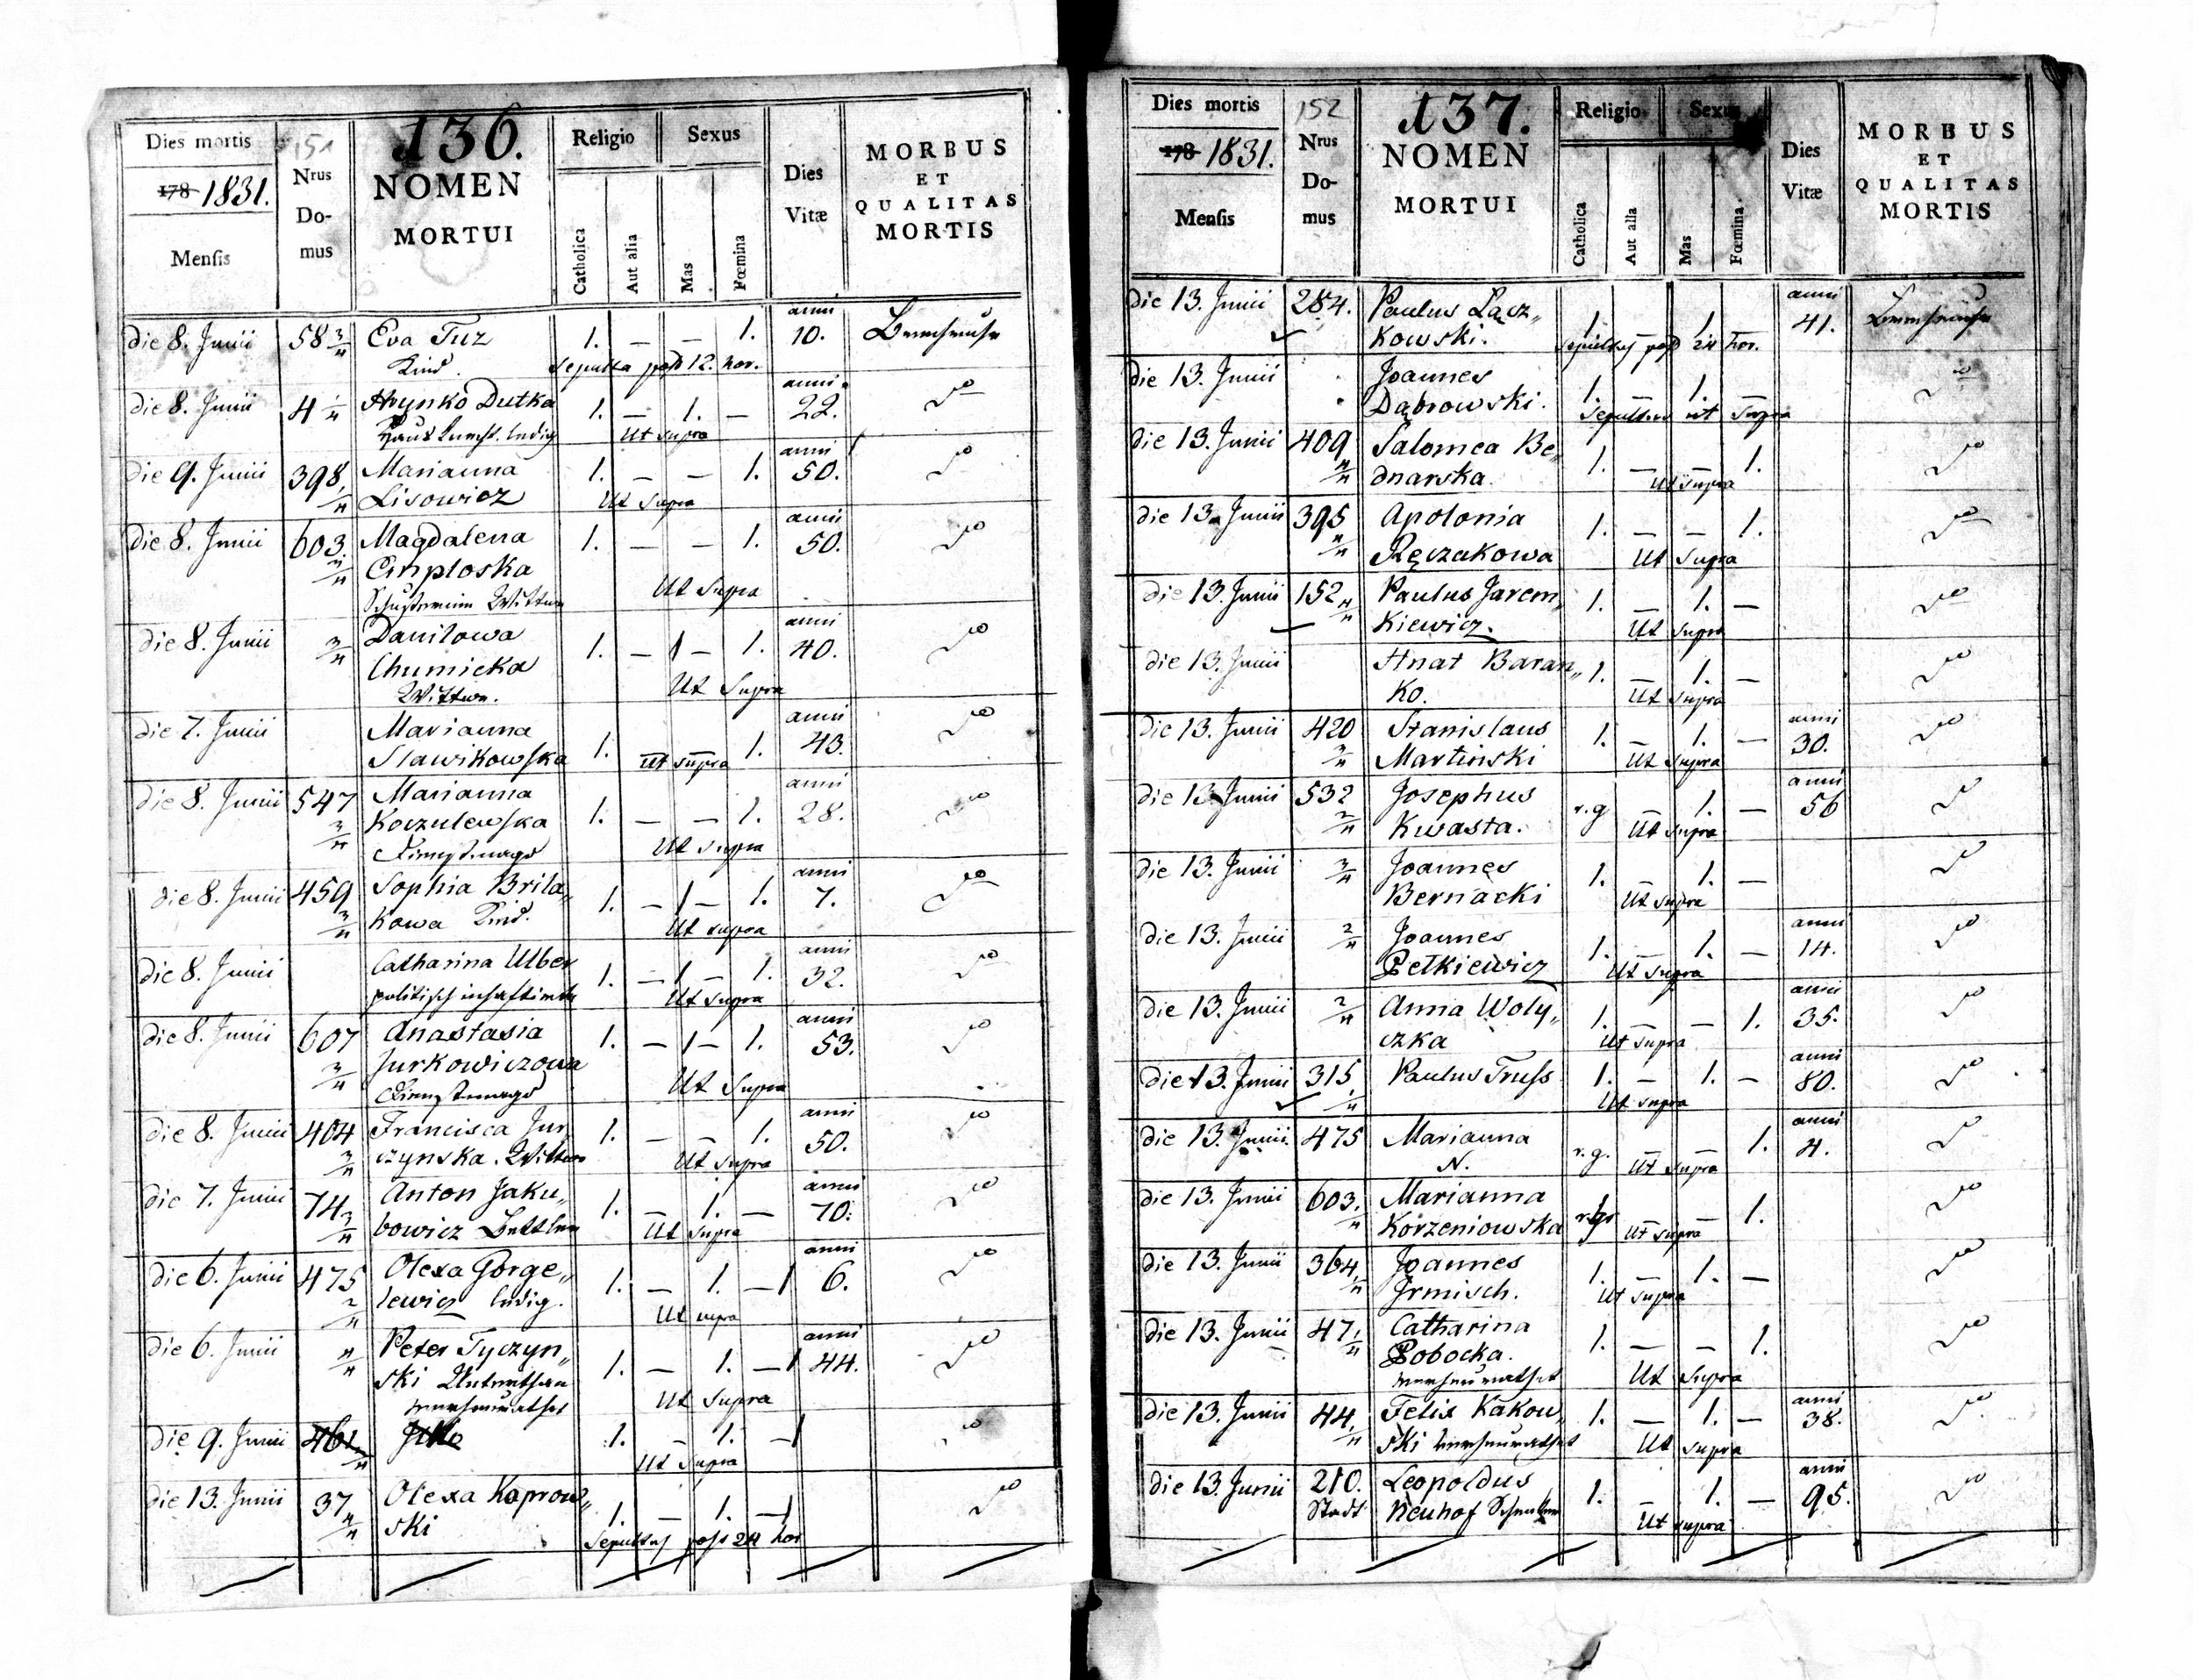 Dies mortis
178 1831.
Mensis
151
Nrus Domus
136.
NOMEN
MORTUI
Religio
Catholica
Aut alia
Sexus
Mas
Fœmina
Dies Vitæ
MORBUS
ET
QUALITAS
MORTIS
die 8. Junii 58 3/4 Eva Tuz 1. — — 1. anni 10. Brechruhr
Kind. Sepulta post 12. hor.
die 8. Junii 4 1/4 Hrynko Dutka 1. — 1. — anni 22. do
Hausknecht. ledig Ut supra
die 9. Junii 398 1/4 Marianna 1. — — 1. anni 50. do
Lisowicz Ut Supra
die 8. Junii 603. Magdalena 1. — — 1. anni 50. do
Ut Supra
Wittwe
die 8. Junii 3/4 Danilowa 1. — — 1. anni 40. do
Chumicka Ut Supra
Wittwe.
die 7. Junii Marianna anni do
Slawikowska 1. ut supra 1. 43.
die 8. Junii 547 3/4 Marianna anni 28. do
Koczulewska 1. — — 1.
Dienstmagd Ut supra
die 8. Junii 459 3/4 Sophia Brila„ 1. — — 1. anni 7. do
kowa Kind. Ut supra
die 8. Junii Catharina Ulber 1. — — 1. anni 32. do
politisch Ut supra
die 8. Junii 607 3/4 Anastasia 1. — — 1. anni 53. do
Jurkowiczowa
Dienstmagd Ut Supra
die 8. Junii 404 3/4 Francisca Jur„ 1. — — 1. anni 50. do
czynska. Wittwe Ut supra
die 7. Junii 74 3/4 Anton Jaku„ 1. — 1. — anni 70. do
bowicz Bettler Ut Supra
die 6. Junii 475 2/4 Olexa Gorge„ 1. — 1. — anni 6. do
lewicz ledig. Ut supra
die 6. Junii 4/4 Peter Tyczyn„ 1. — 1. — anni 44. do
ski
verheurathet Ut Supra
die 9. Junii 461 1. — 1. — do
Ut Supra
die 13. Junii 37 4/4 Olexa Koprow„ 1. — 1. — do
ski Sepultus post 24 hor
Dies mortis
178 1831.
Mensis
152
Nrus Domus
137.
NOMEN
MORTUI
Religio
Catholica
Aut alia
Sexus
Mas
Fœmina.
Dies Vitæ
MORBUS
ET
QUALITAS
MORTIS
die 13. Junii 284. Paulus Lącz„ 1. 1. anni 41. Brechruhr
kowski. Sepultus post 24 hor.
die 13. Junii Joannes 1. — 1. — do
Dąbrowski. Sepultus ut Supra
die 13. Junii 409 4/4 Salomea Be„ 1. — — 1. do
dnarska. Ut Supra
die 13. Junii 395 4/4 Apolonia 1. — — 1. do
Ręczakowa Ut Supra
die 13. Junii 152 4/4 Paulus Jarem„ 1. — 1. — do
kiewicz. Ut Supra
die 13. Junii Hnat Baran„ 1. — 1. — do
ko. Ut Supra
die 13. Junii 420 3/4 Stanislaus 1. — 1. — anni 30. do
Martinski Ut Supra
die 13 Junii 532 2/4 Josephus r.g — 1. — anni 56 do
Kwasta. Ut Supra
die 13. Junii 3/4 Joannes 1. — 1. — do
Bernacki Ut supra
die 13. Junii 2/4 Joannes 1. — 1. — anni 14. do
Petkiewicz Ut Supra
die 13. Junii 2/4 Anna Woly„ 1. — — 1. anni 35. do
czka Ut supra
die 13. Junii 315 1/4 Paulus Truss 1. — 1. — anni 80. do
Ut supra
die 13. Junii 475 Marianna r.g. — — 1. anni 4. do
N. Ut supra
die 13. Junii 603. Marianna — — 1. do
Korzeniowska Ut supra
die 13. Junii 364. Joannes 1. — 1. — do
Jrmisch. Ut supra
die 13. Junii 47 1/4 Catharina 1. — — 1. do
Bobocka.
verheurathet Ut Supra
die 13. Junii 44 1/4 Felix Kakow„ 1. — 1. — anni 38. do
ski verheurathet Ut supra
die 13. Junii 210. Leopoldus 1. — 1. — anni 95. do
Stadt Neuhof Ut supra